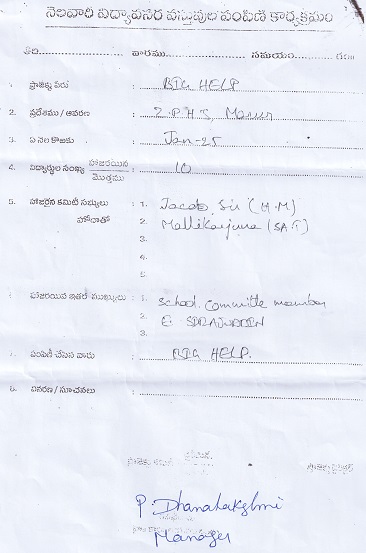 నెలవారి విద్యావసర వస్తువుల పంపిణి కార్యక్రమం
తేది: వారము సమయం గం॥
1. ప్రాజెక్టు పేరు : BIG HELP
2. ప్రదేశము / ఆవరణ : Z.P.H.S,
3. ఏ నెల కొఱకు : Jan-25
4. విద్యార్థుల సంఖ్య హాజరయిన / మొత్తము : 10
5. హాజరైన కమిటీ సభ్యులు : 1. Jacob Sir (H.M)
హోదాతో 2. Mallikarjuna (SA.T)
3.
4.
5.
6. హాజరయిన ఇతర ముఖ్యులు : 1. School Committe member
2. E.
3.
7. పంపిణీ చేసిన వారు : BIG HELP.
8. వివరణ / సూచనలు :
P. Dhanalakshmi
Manager